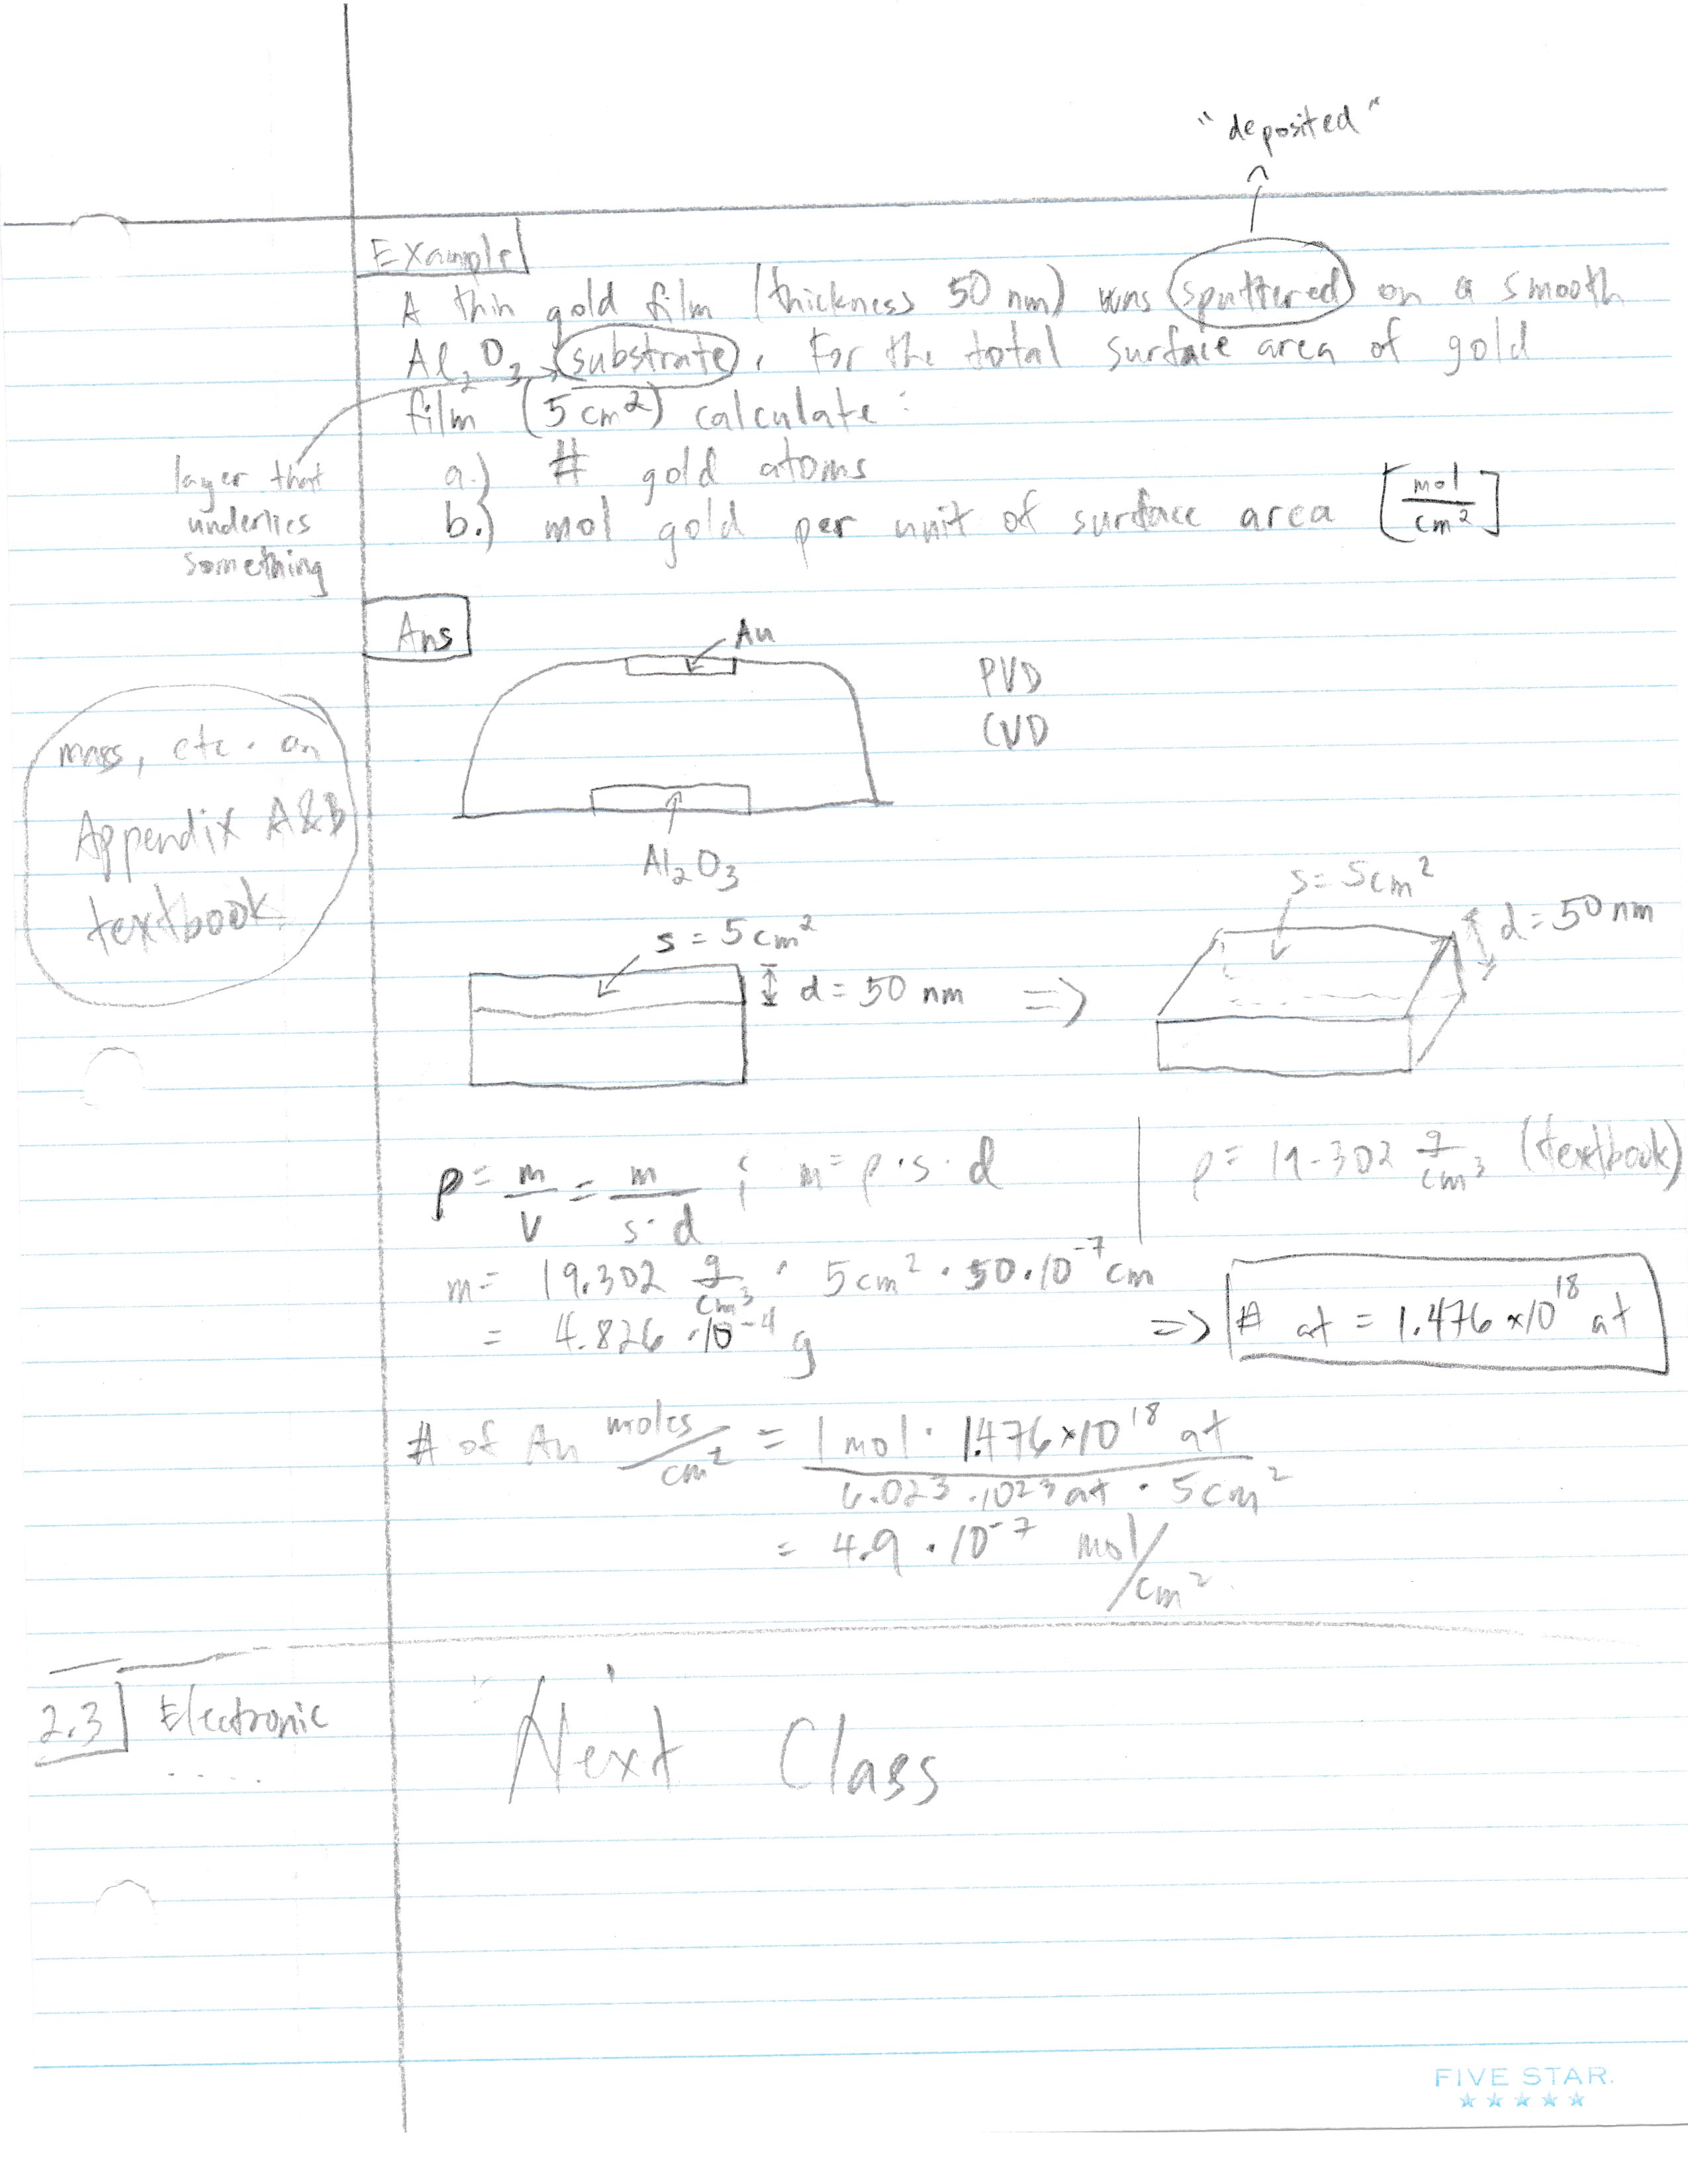 "deposited"
Example
A thin gold film (thickness 50 nm) was sputtered on a smooth
Al₂O₃ substrate. For the total surface area of gold
film (5 cm²) calculate:
layer that
underlies
something
a.) # gold atoms
b.) mol gold per unit of surface area [mol/cm²]
Ans
Au
PVD
CVD
Al₂O₃
mass, etc. on
Appendix A&B
textbook
s = 5 cm²
d = 50 nm =>
s = 5cm²
d = 50 nm
ρ = m/V = m/s·d ; m = ρ·s·d
ρ = 19.302 g/cm³ (textbook)
m = 19.302 g/cm³ · 5 cm² · 50·10⁻⁷ cm
= 4.826 ·10⁻⁴ g
=> # at = 1.476 x10¹⁸ at
# of Au moles/cm² = 1 mol · 1.476x10¹⁸ at / 6.023 ·10²³ at · 5 cm²
= 4.9 · 10⁻⁷ mol/cm²
2.3 Electronic
.....
Next Class
FIVE STAR.
★★★★★